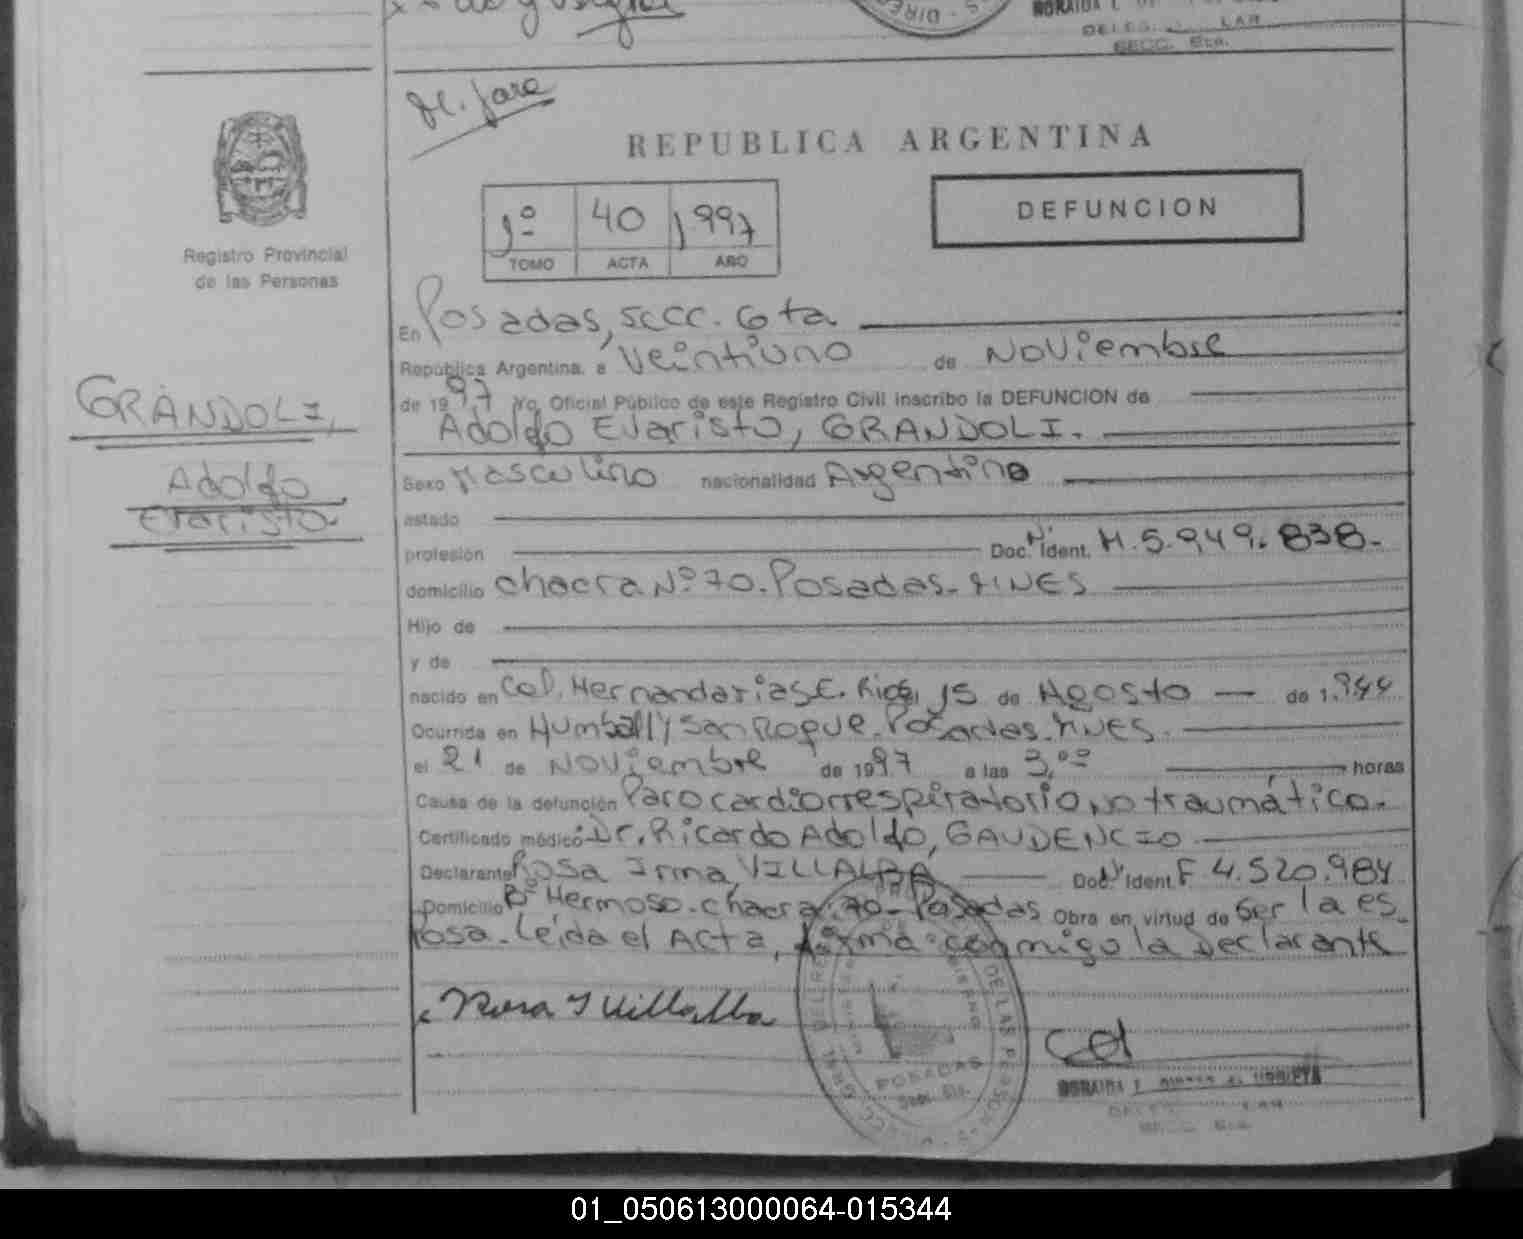 DELEG. LAR
SECC. 6ta.
M. Jara
REPUBLICA ARGENTINA
1º 40 1997
TOMO ACTA AÑO
DEFUNCION
Registro Provincial
de las Personas
En Posadas, secc. 6ta
República Argentina, a Veintiuno de Noviembre
de 1997 Yo, Oficial Público de este Registro Civil inscribo la DEFUNCION de
Adolfo Evaristo, GRANDOLI.
GRANDOLI,
Adolfo
Evaristo.
Sexo Masculino nacionalidad Argentino
estado
profesión Doc. Nº Ident. M. 5.949.838.-
domicilio chacra Nº 70. Posadas. MNES
Hijo de
y de
nacido en Col. Hernandarias E. Rios, 15 de Agosto de 1.944
Ocurrida en Humbolly San Roque. Posadas. MNES.
el 21 de Noviembre de 1997 a las 3,00 horas
Causa de la defunción Paro cardiorrespiratorio no traumático.
Certificado médico: Dr. Ricardo Adolfo, GAUDENCIO
Declarante Rosa Irma, VILLALBA Doc. Nº Ident F 4.520.984
Domicilio Bº Hermoso. chacra. 70- Posadas Obra en virtud de Ser la es
posa. Leida el Acta, firma conmigo la Declarante
Rosa I Villalba
DE LAS PERSONAS
POSADAS
Secc. 6ta.
01_050613000064-015344